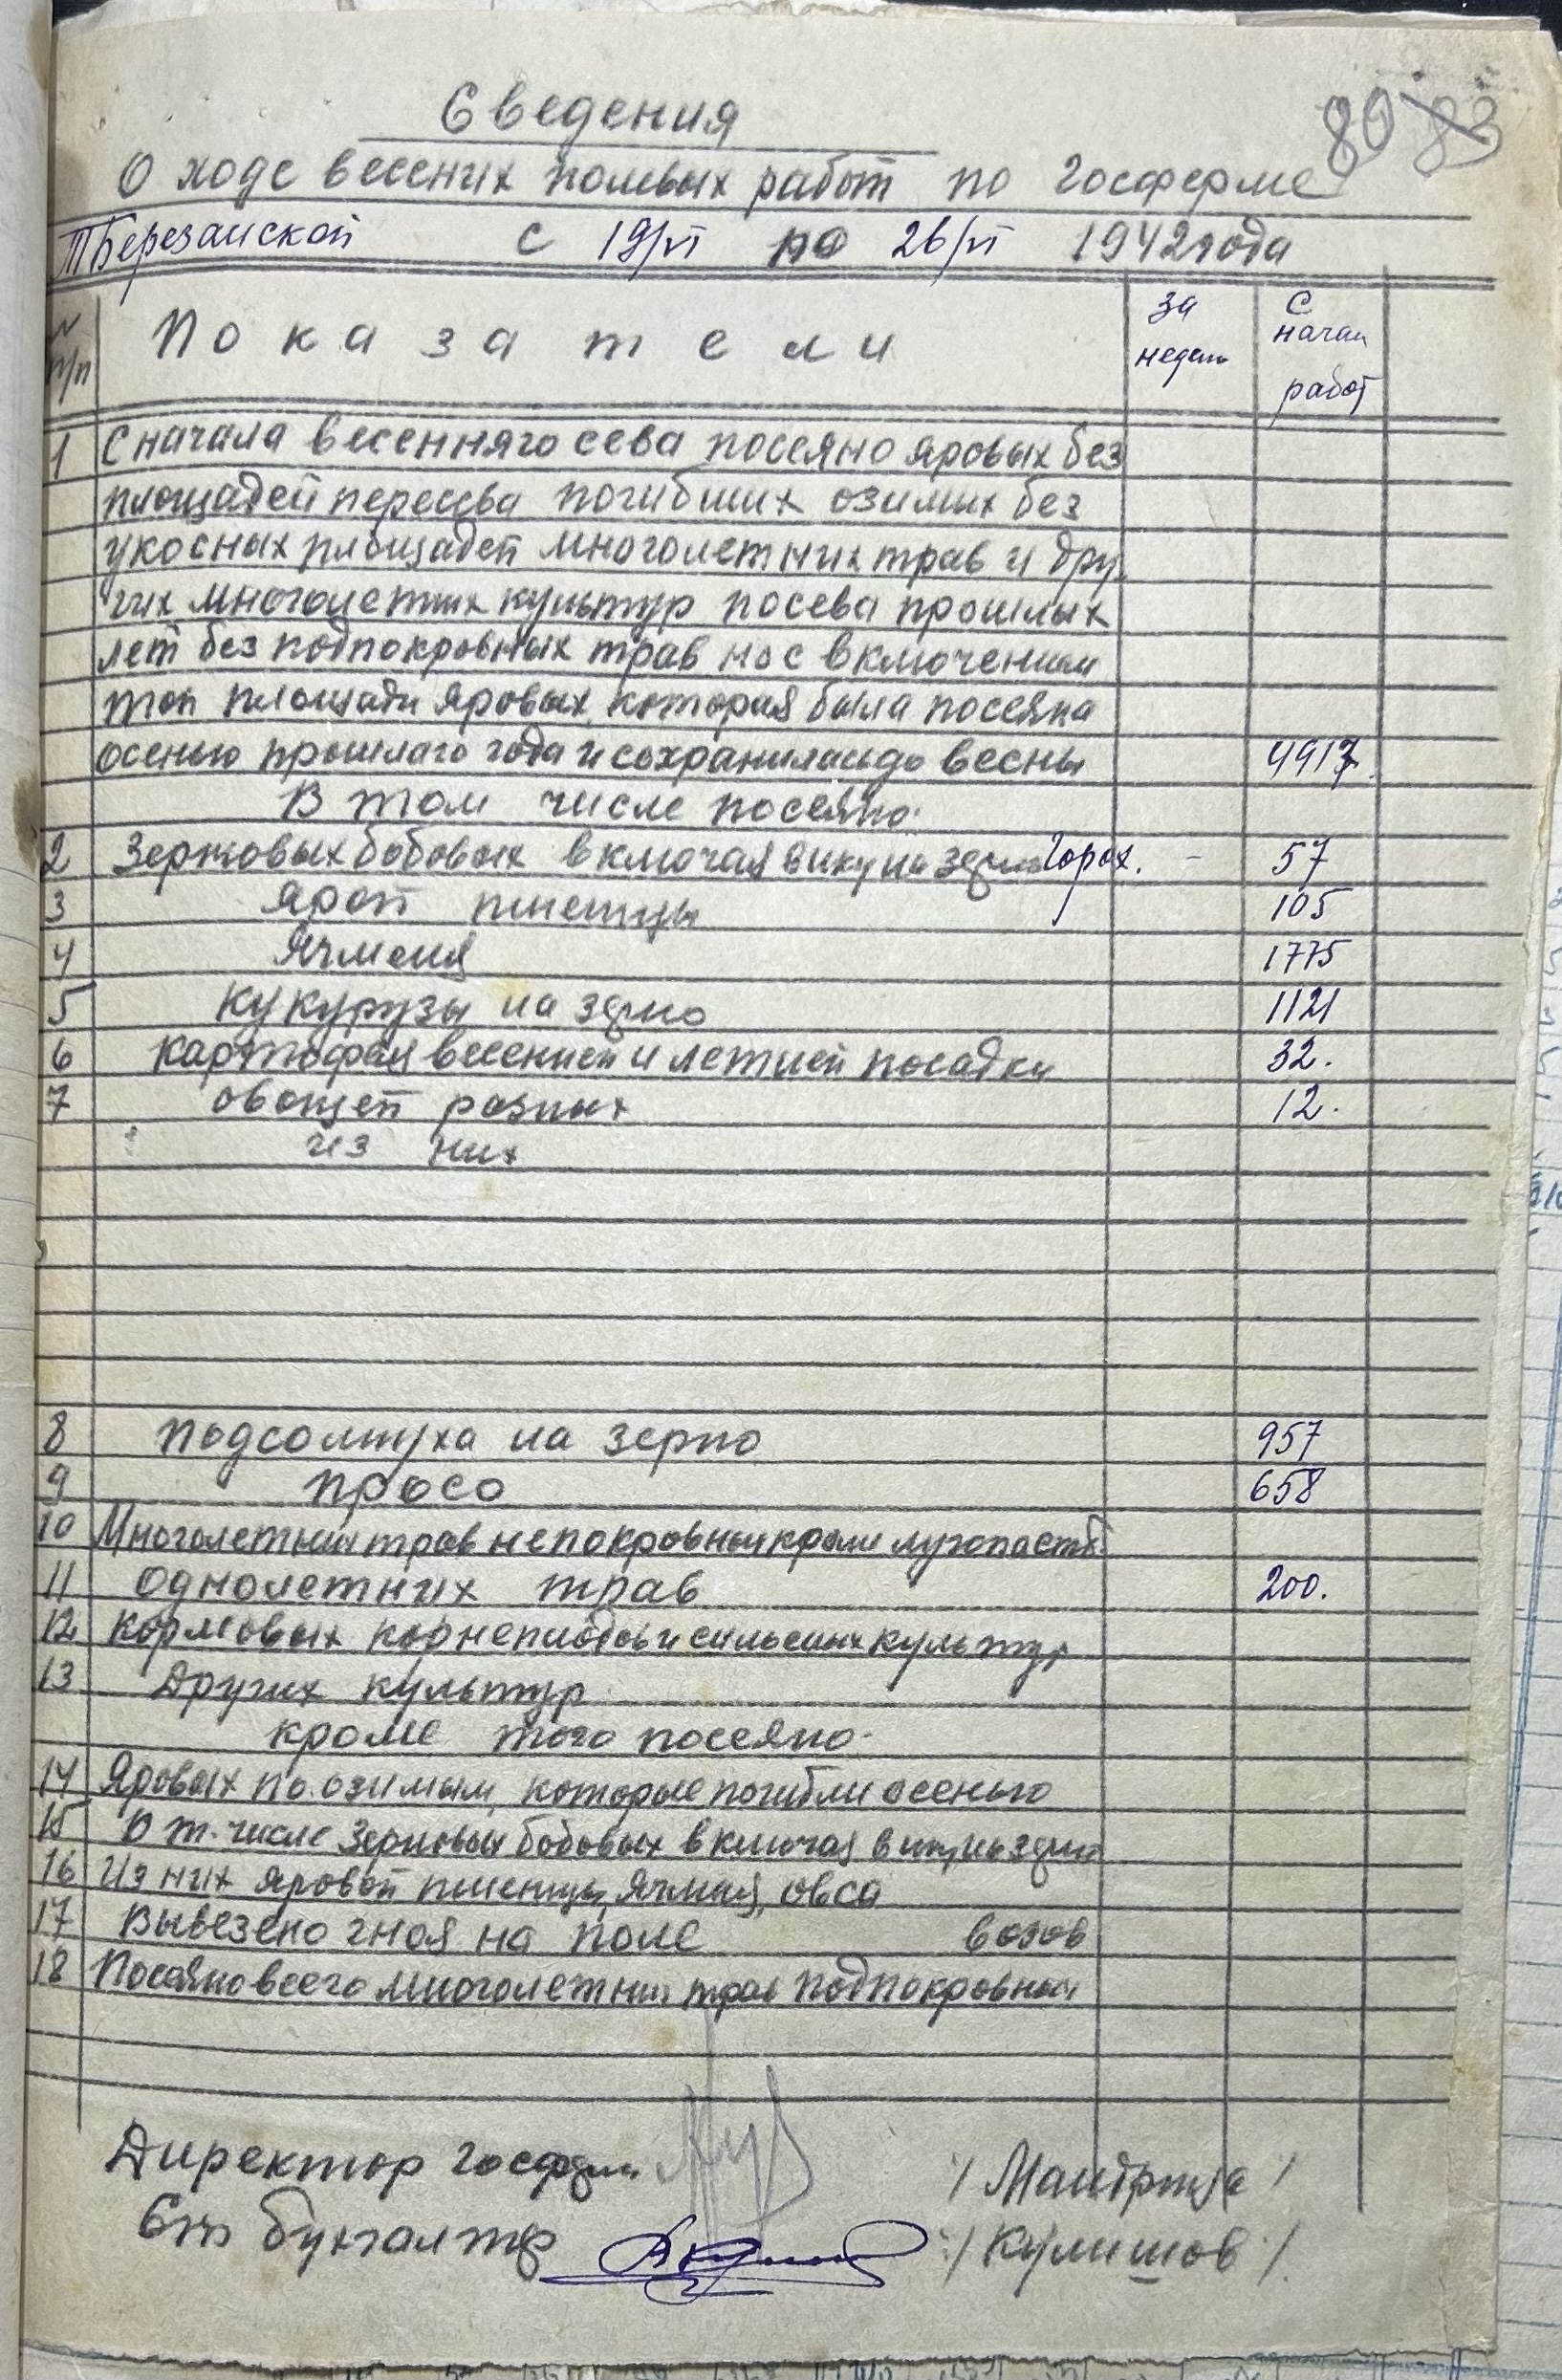 80 83
Сведения
О ходе весенних полевых работ по Госферме
Березанской с 19/VI по 26/VI 1942 года
№ п/п Показатели за недель с начал работ
1 С начала весенняго сева посеяно яровых без
площадей пересева погибших озимых без
укосных площадей многолетних трав и дру
гих многолетних культур посева прошлых
лет без подпокровных трав но с включением
той площади яровых, которая была посеяна
осенью прошлаго года и сохранилась до весны 4917.
В том числе посеяно.
2 Зерновых бобовых включая вику на зерно Горох. - 57
3 Ярой пшеницы 105
4 Ячменя 1775
5 Кукурузы на зерно 1121
6 Картофеля весенней и летней посадки 32.
7 овощей разных 12.
из них
8 Подсолнуха на зерно 957
9 просо 658
10 Многолетних трав непокровных кроме лугопастб.
11 однолетних трав 200.
12 Кормовых корнеплодов и сильсных культур
13 Других культур
кроме того посеяно.
14 Яровых по озимым, которые погибли осенью
15 В т. числе зерновых бобовых включая вику на зерно
16 Из них яровой пшеницы, ячменя, овса
17 Вывезено гноя на поле возов
18 Посеяно всего многолетних трав подпокровных
Директор госферм
Ст бухгалтер /Кулишов/